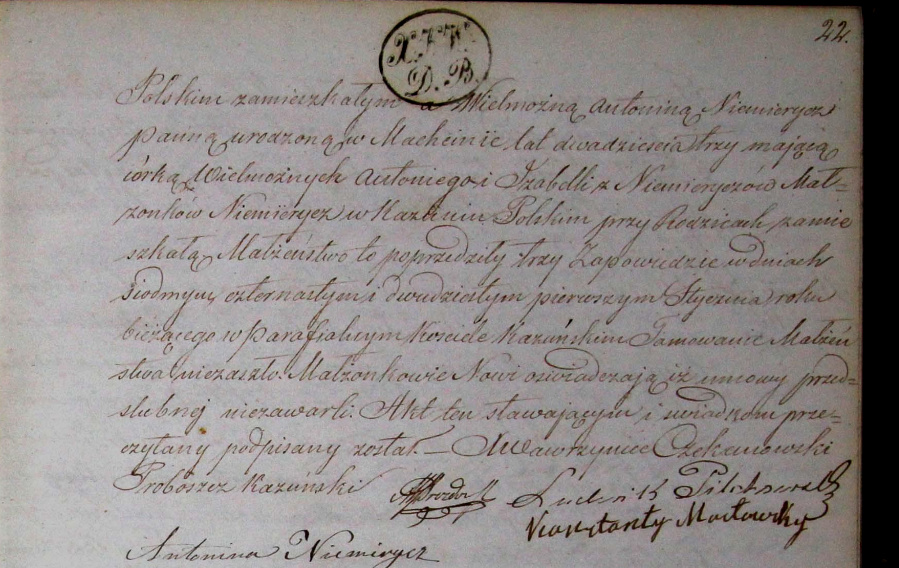 22.
D. B.
Polskim zamieszkałym a Wielmożną Antoniną Niemierycz
panną urodzoną w Macheinie lat dwadzieścia trzy mającą
córką Wielmożnych Antoniego i Izabelli z Niemieryczów Mał-
żonków Niemierycz w Kazuniu Polskim przy Rodzicach zamie
szkałą. Małżeństwo to poprzedziły trzy Zapowiedzie w dniach
siodmym, czternastym i dwudziestym pierwszym Stycznia roku
bieżącego w parafialnym Kościele Kazuńskim Tamowanie Małżeń
stwa niezaszło. Małżonkowie Nowi oswiadczają iż umowy przed-
slubnej niezawarli. Akt ten stawającym i swiadkom prze-
czytany podpisany został. — Wawrzyniec Czekanowski
Proboszcz Kazuński
Ludwik
Konstanty Macłowsky
Antonina Niemirycz